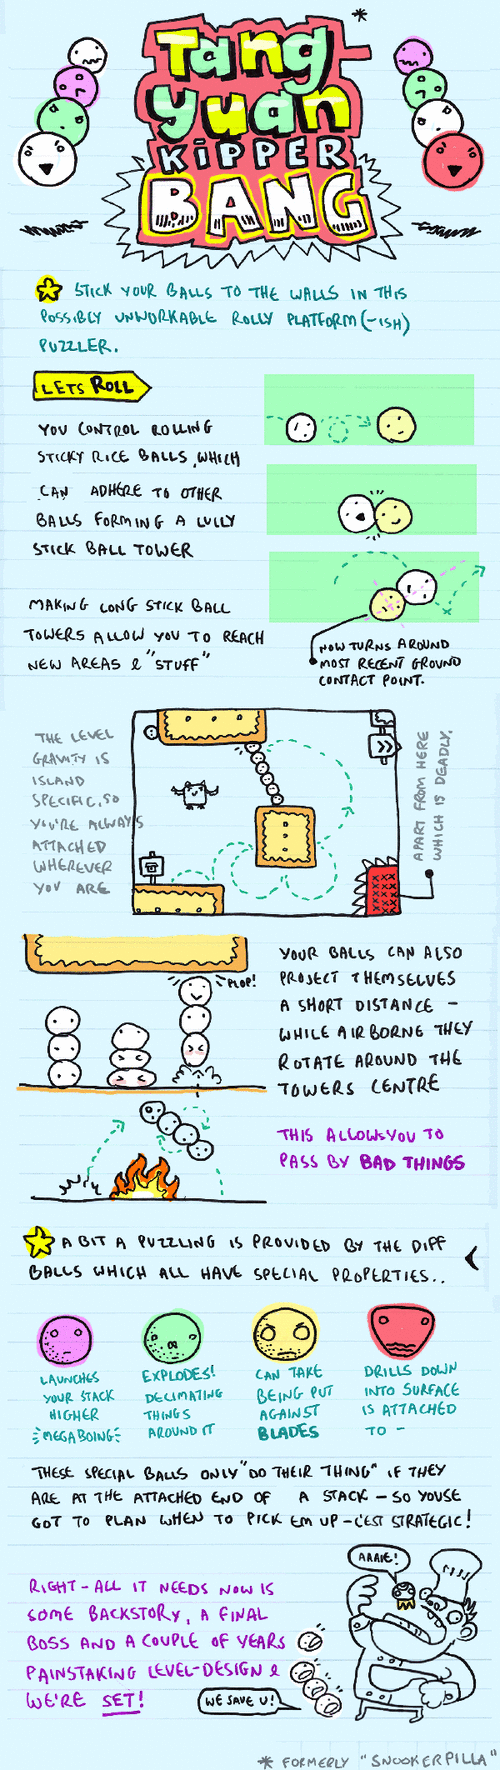 *
Tang-
yuan
KiPPER
BANG
STICK YOUR BALLS TO THE WALLS IN THIS
POSSIBLY UNWORKABLE ROLLY PLATFORM(-ISH)
PUZZLER.
LETS ROLL
YOU CONTROL ROLLING
STICKY RICE BALLS, WHICH
CAN ADHERE TO OTHER
BALLS FORMING A LULLY
STICK BALL TOWER
MAKING LONG STICK BALL
TOWERS ALLOW YOU TO REACH
NEW AREAS & "STUFF"
NOW TURNS AROUND
MOST RECENT GROUND
CONTACT POINT.
THE LEVEL
GRAVITY IS
ISLAND
SPECIFIC, SO
YOU'RE ALWAYS
ATTACHED
WHEREVER
YOU ARE
APART FROM HERE
WHICH IS DEADLY.
PLOP!
YOUR BALLS CAN ALSO
PROJECT THEMSELVES
A SHORT DISTANCE -
WHILE AIRBORNE THEY
ROTATE AROUND THE
TOWERS CENTRE
THIS ALLOWS YOU TO
PASS BY BAD THINGS
A BIT A PUZZLING IS PROVIDED BY THE DIFF
BALLS WHICH ALL HAVE SPECIAL PROPERTIES..
LAUNCHES
YOUR STACK
HIGHER
MEGABOING
EXPLODES!
DECIMATING
THINGS
AROUND IT
CAN TAKE
BEING PUT
AGAINST
BLADES
DRILLS DOWN
INTO SURFACE
IS ATTACHED
TO -
THESE SPECIAL BALLS ONLY "DO THEIR THING" IF THEY
ARE AT THE ATTACHED END OF A STACK - SO YOUSE
GOT TO PLAN WHEN TO PICK EM UP - C'EST STRATEGIC!
RIGHT - ALL IT NEEDS NOW IS
SOME BACKSTORY, A FINAL
BOSS AND A COUPLE OF YEARS
PAINSTAKING LEVEL-DESIGN &
WE'RE SET!
AAAIE!
WE SAVE U!
* FORMERLY "SNOOKERPILLA"